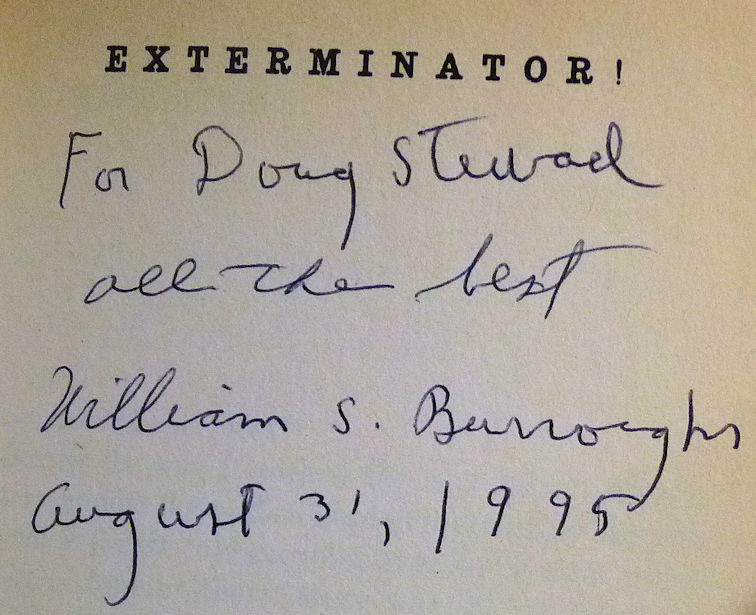 EXTERMINATOR!
For Doug Steward
all the best
William S. Burroughs
August 31, 1995